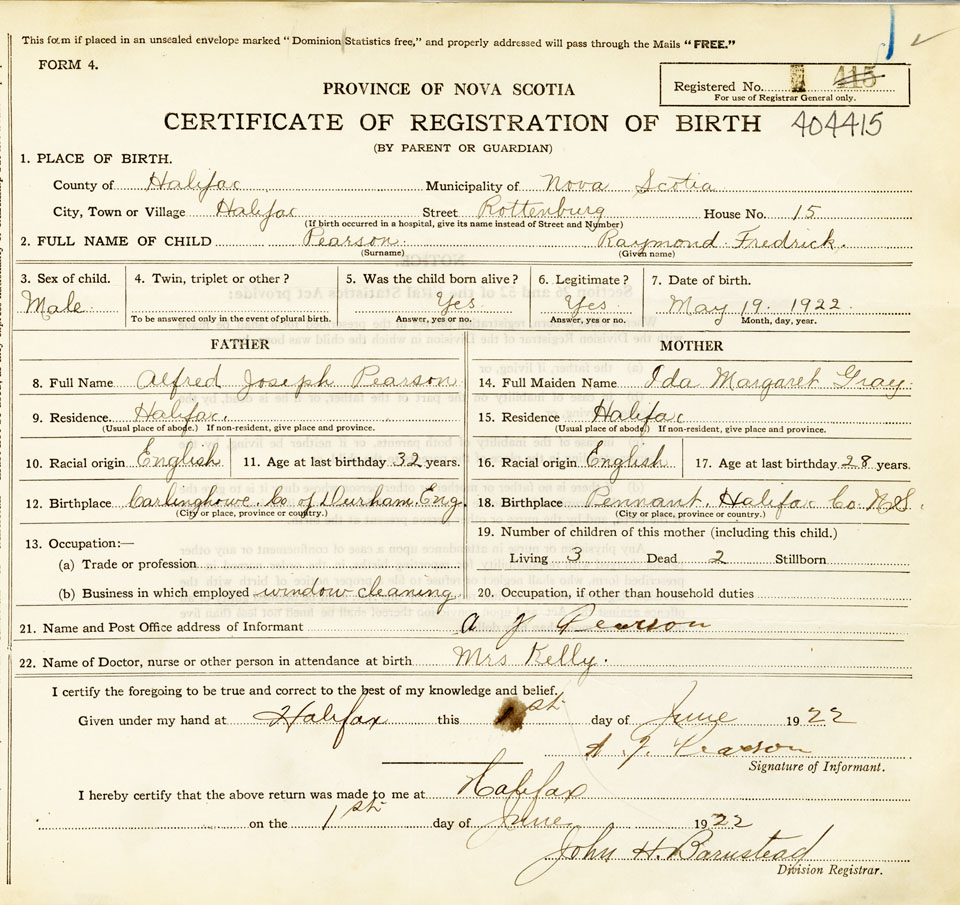 This form if placed in an unsealed envelope marked "Dominion Statistics free," and properly addressed will pass through the Mails "FREE."
FORM 4.
Registered No. 415
For use of Registrar General only.
PROVINCE OF NOVA SCOTIA
CERTIFICATE OF REGISTRATION OF BIRTH 404415
(BY PARENT OR GUARDIAN)
1. PLACE OF BIRTH.
County of Halifax Municipality of Nova Scotia
City, Town or Village Halifax Street Rottenburg House No. 15
(If birth occurred in a hospital, give its name instead of Street and Number)
2. FULL NAME OF CHILD Pearson Raymond Fredrick.
(Surname) (Given name)
3. Sex of child. 4. Twin, triplet or other? 5. Was the child born alive? 6. Legitimate? 7. Date of birth.
Male Yes Yes May 19. 1922.
To be answered only in the event of plural birth. Answer, yes or no. Answer, yes or no. Month, day, year.
FATHER MOTHER
8. Full Name Alfred Joseph Pearson 14. Full Maiden Name Ida Margaret Gray
9. Residence. Halifax. 15. Residence Halifax
(Usual place of abode) If non-resident, give place and province. (Usual place of abode) If non-resident, give place and province.
10. Racial origin English 11. Age at last birthday 32 years. 16. Racial origin English 17. Age at last birthday 28 years.
12. Birthplace Carlinghowe. Co of Durham. Eng 18. Birthplace Pennant. Halifax Co. N.S.
(City or place, province or country.) (City or place, province or country.)
13. Occupation:— 19. Number of children of this mother (including this child.)
(a) Trade or profession Living 3 Dead 2 Stillborn
(b) Business in which employed window cleaning 20. Occupation, if other than household duties
21. Name and Post Office address of Informant A J Pearson
22. Name of Doctor, nurse or other person in attendance at birth Mrs Kelly.
I certify the foregoing to be true and correct to the best of my knowledge and belief.
Given under my hand at Halifax this 1st day of June 1922
A. J. Pearson
Signature of Informant.
I hereby certify that the above return was made to me at Halifax
on the 1st day of June 1922
John H. Barnstead
Division Registrar.